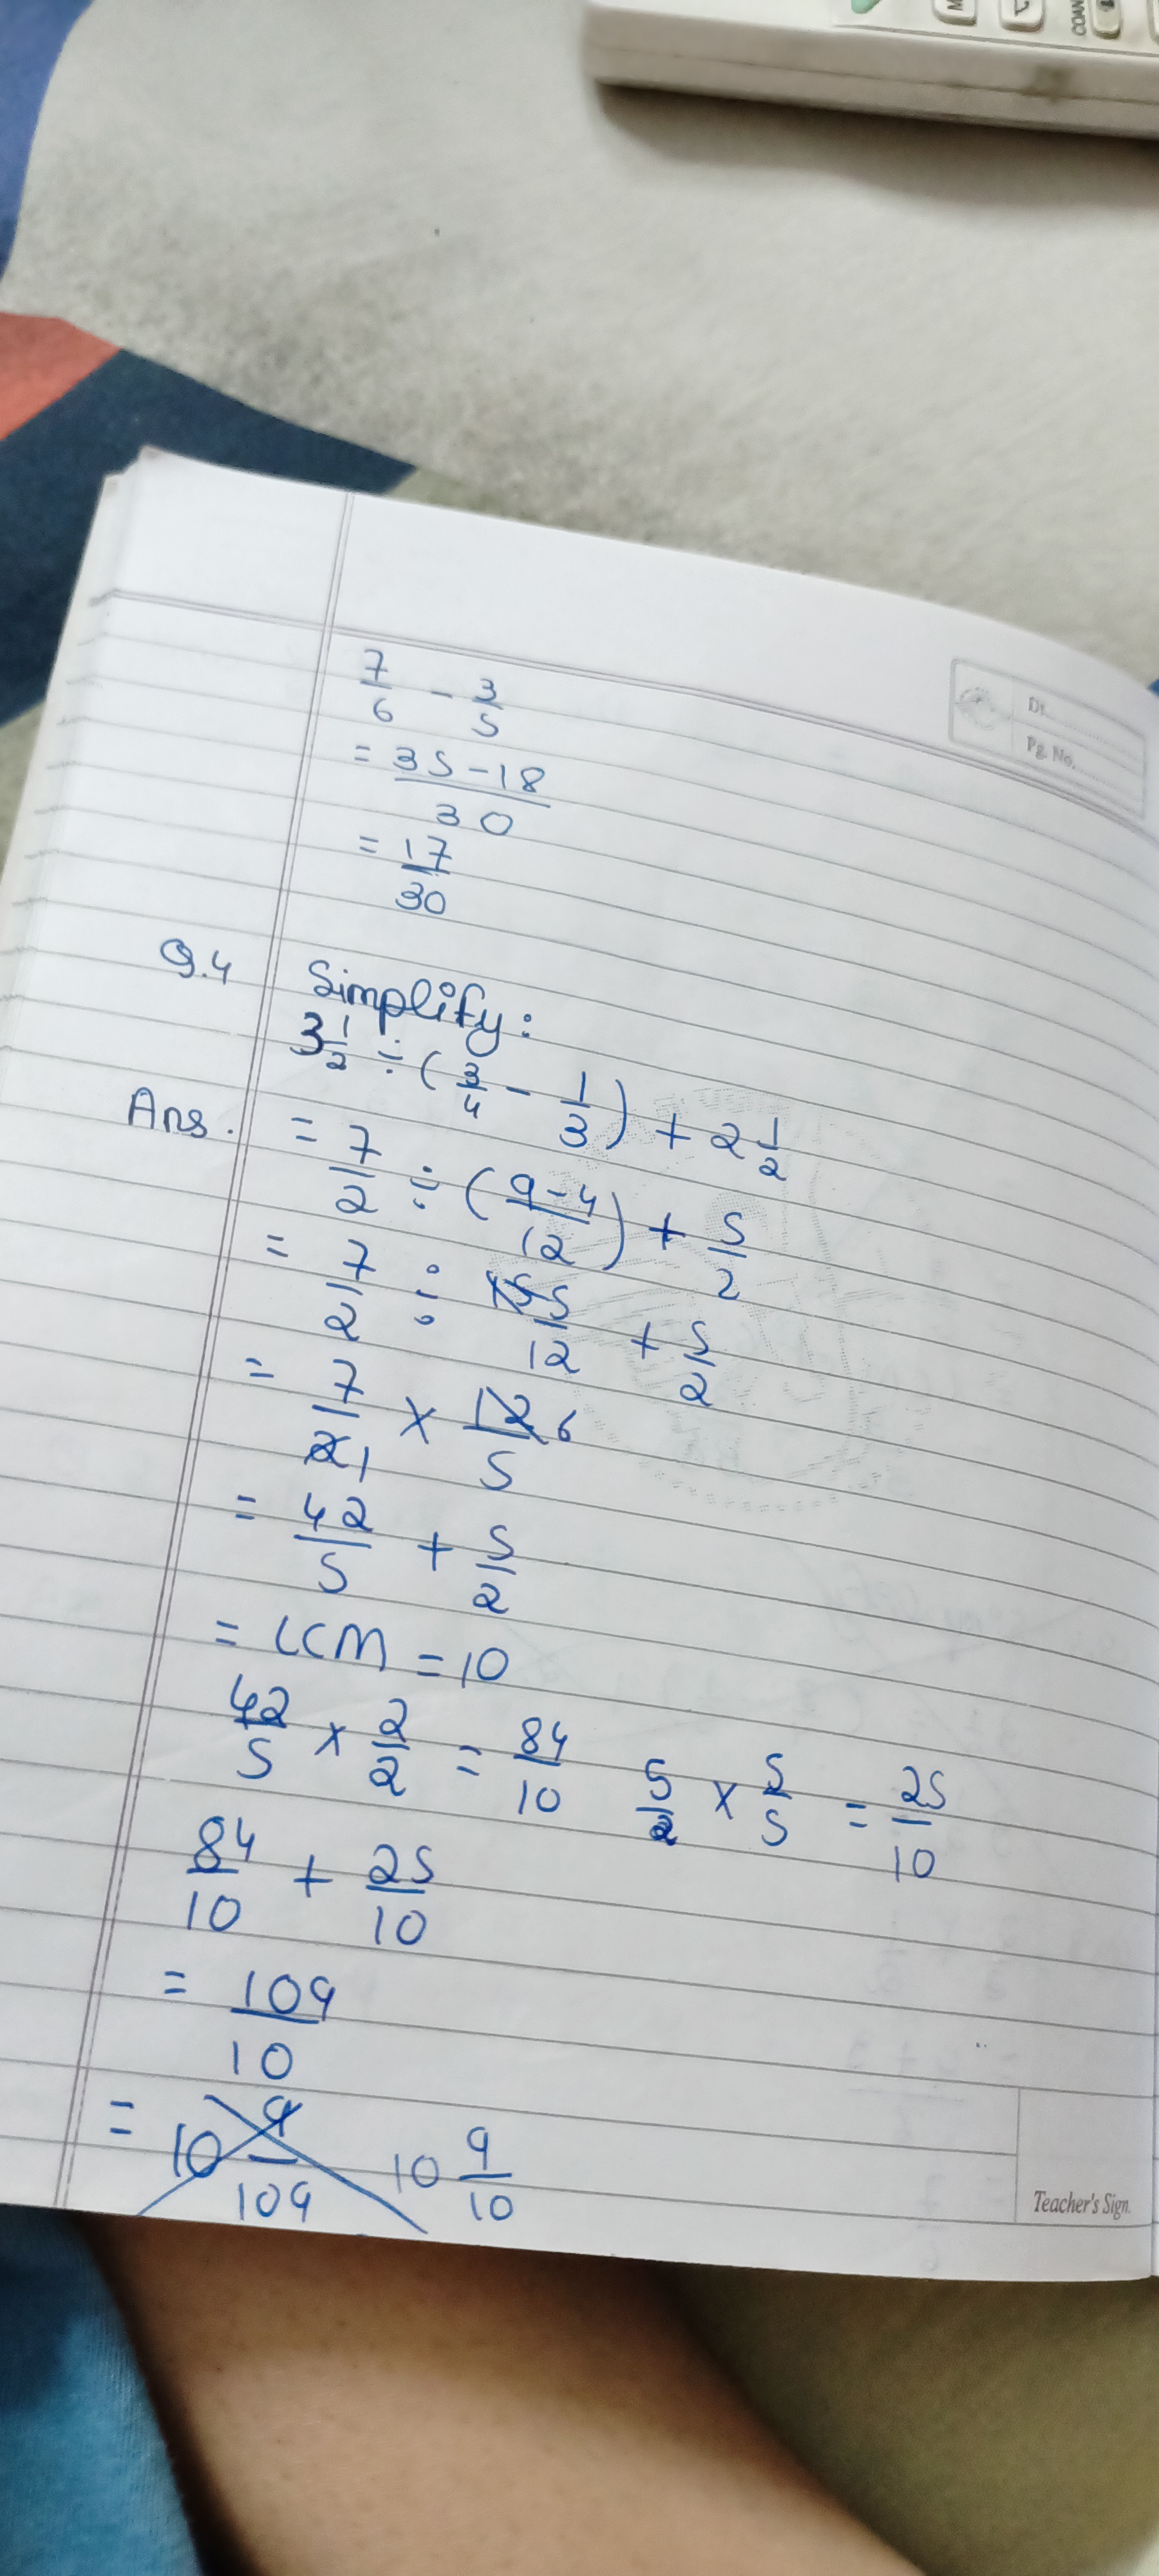 7/6 - 3/5
= 35-18/30
= 17/30
Dt.
Pg. No.
Q.4 Simplify:
3 1/2 ÷ (3/4 - 1/3) + 2 1/2
Ans. = 7/2 ÷ (9-4/12) + 5/2
= 7/2 ÷ 5/12 + 5/2
= 7/2 1 × 12/5 6
= 42/5 + 5/2
= LCM = 10
42/5 × 2/2 = 84/10 5/2 × 5/5 = 25/10
84/10 + 25/10
= 109/10
= 10 9/109 10 9/10
Teacher's Sign.